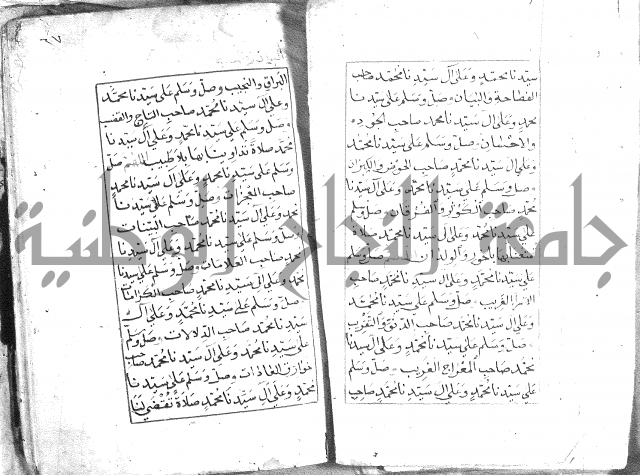 سيدنا محمد وعلى آل سيدنا محمد صاحب
الفصاحة والبيان وصل وسلم على سيدنا
محمد وعلى آل سيدنا محمد صاحب الجود
والاحسان وصل وسلم على سيدنا محمد
وعلى آل سيدنا محمد صاحب الحوض
وصل وسلم على سيدنا محمد وعلى آل سيدنا
محمد صاحب الكوثر وصل وسلم
على سيدنا محمد وعلى آل سيدنا محمد صلاة
وصل وسلم
على سيدنا محمد وعلى آل سيدنا محمد صاحب
وصل وسلم على سيدنا محمد
وعلى آل سيدنا محمد صاحب
وصل وسلم على سيدنا محمد وعلى آل سيدنا
محمد صاحب المعراج الغريب وصل وسلم
على سيدنا محمد وعلى آل سيدنا محمد صاحب
٦٧
البراق والنجيب وصل وسلم على سيدنا محمد
وعلى آل سيدنا محمد صاحب التاج والقضيب
وصل وسلم على سيدنا محمد وعلى آل سيدنا
محمد صلاة بها صل
وسلم على سيدنا محمد وعلى آل سيدنا محمد
صاحب المعجزات وصل وسلم على سيدنا
محمد وعلى آل سيدنا محمد صاحب البينات
وصل وسلم على سيدنا محمد وعلى آل سيدنا
محمد صاحب العلامات وصل وسلم على سيدنا
محمد وعلى آل سيدنا محمد صاحب الكرامات
وصل وسلم على سيدنا محمد وعلى آل
سيدنا محمد صاحب الدلالات وصل وسلم
على سيدنا محمد وعلى آل سيدنا محمد صاحب
خوارق العادات وصل وسلم على سيدنا
محمد وعلى آل سيدنا محمد صلاة تقتضي لنا
جامعة النجاح الوطنية